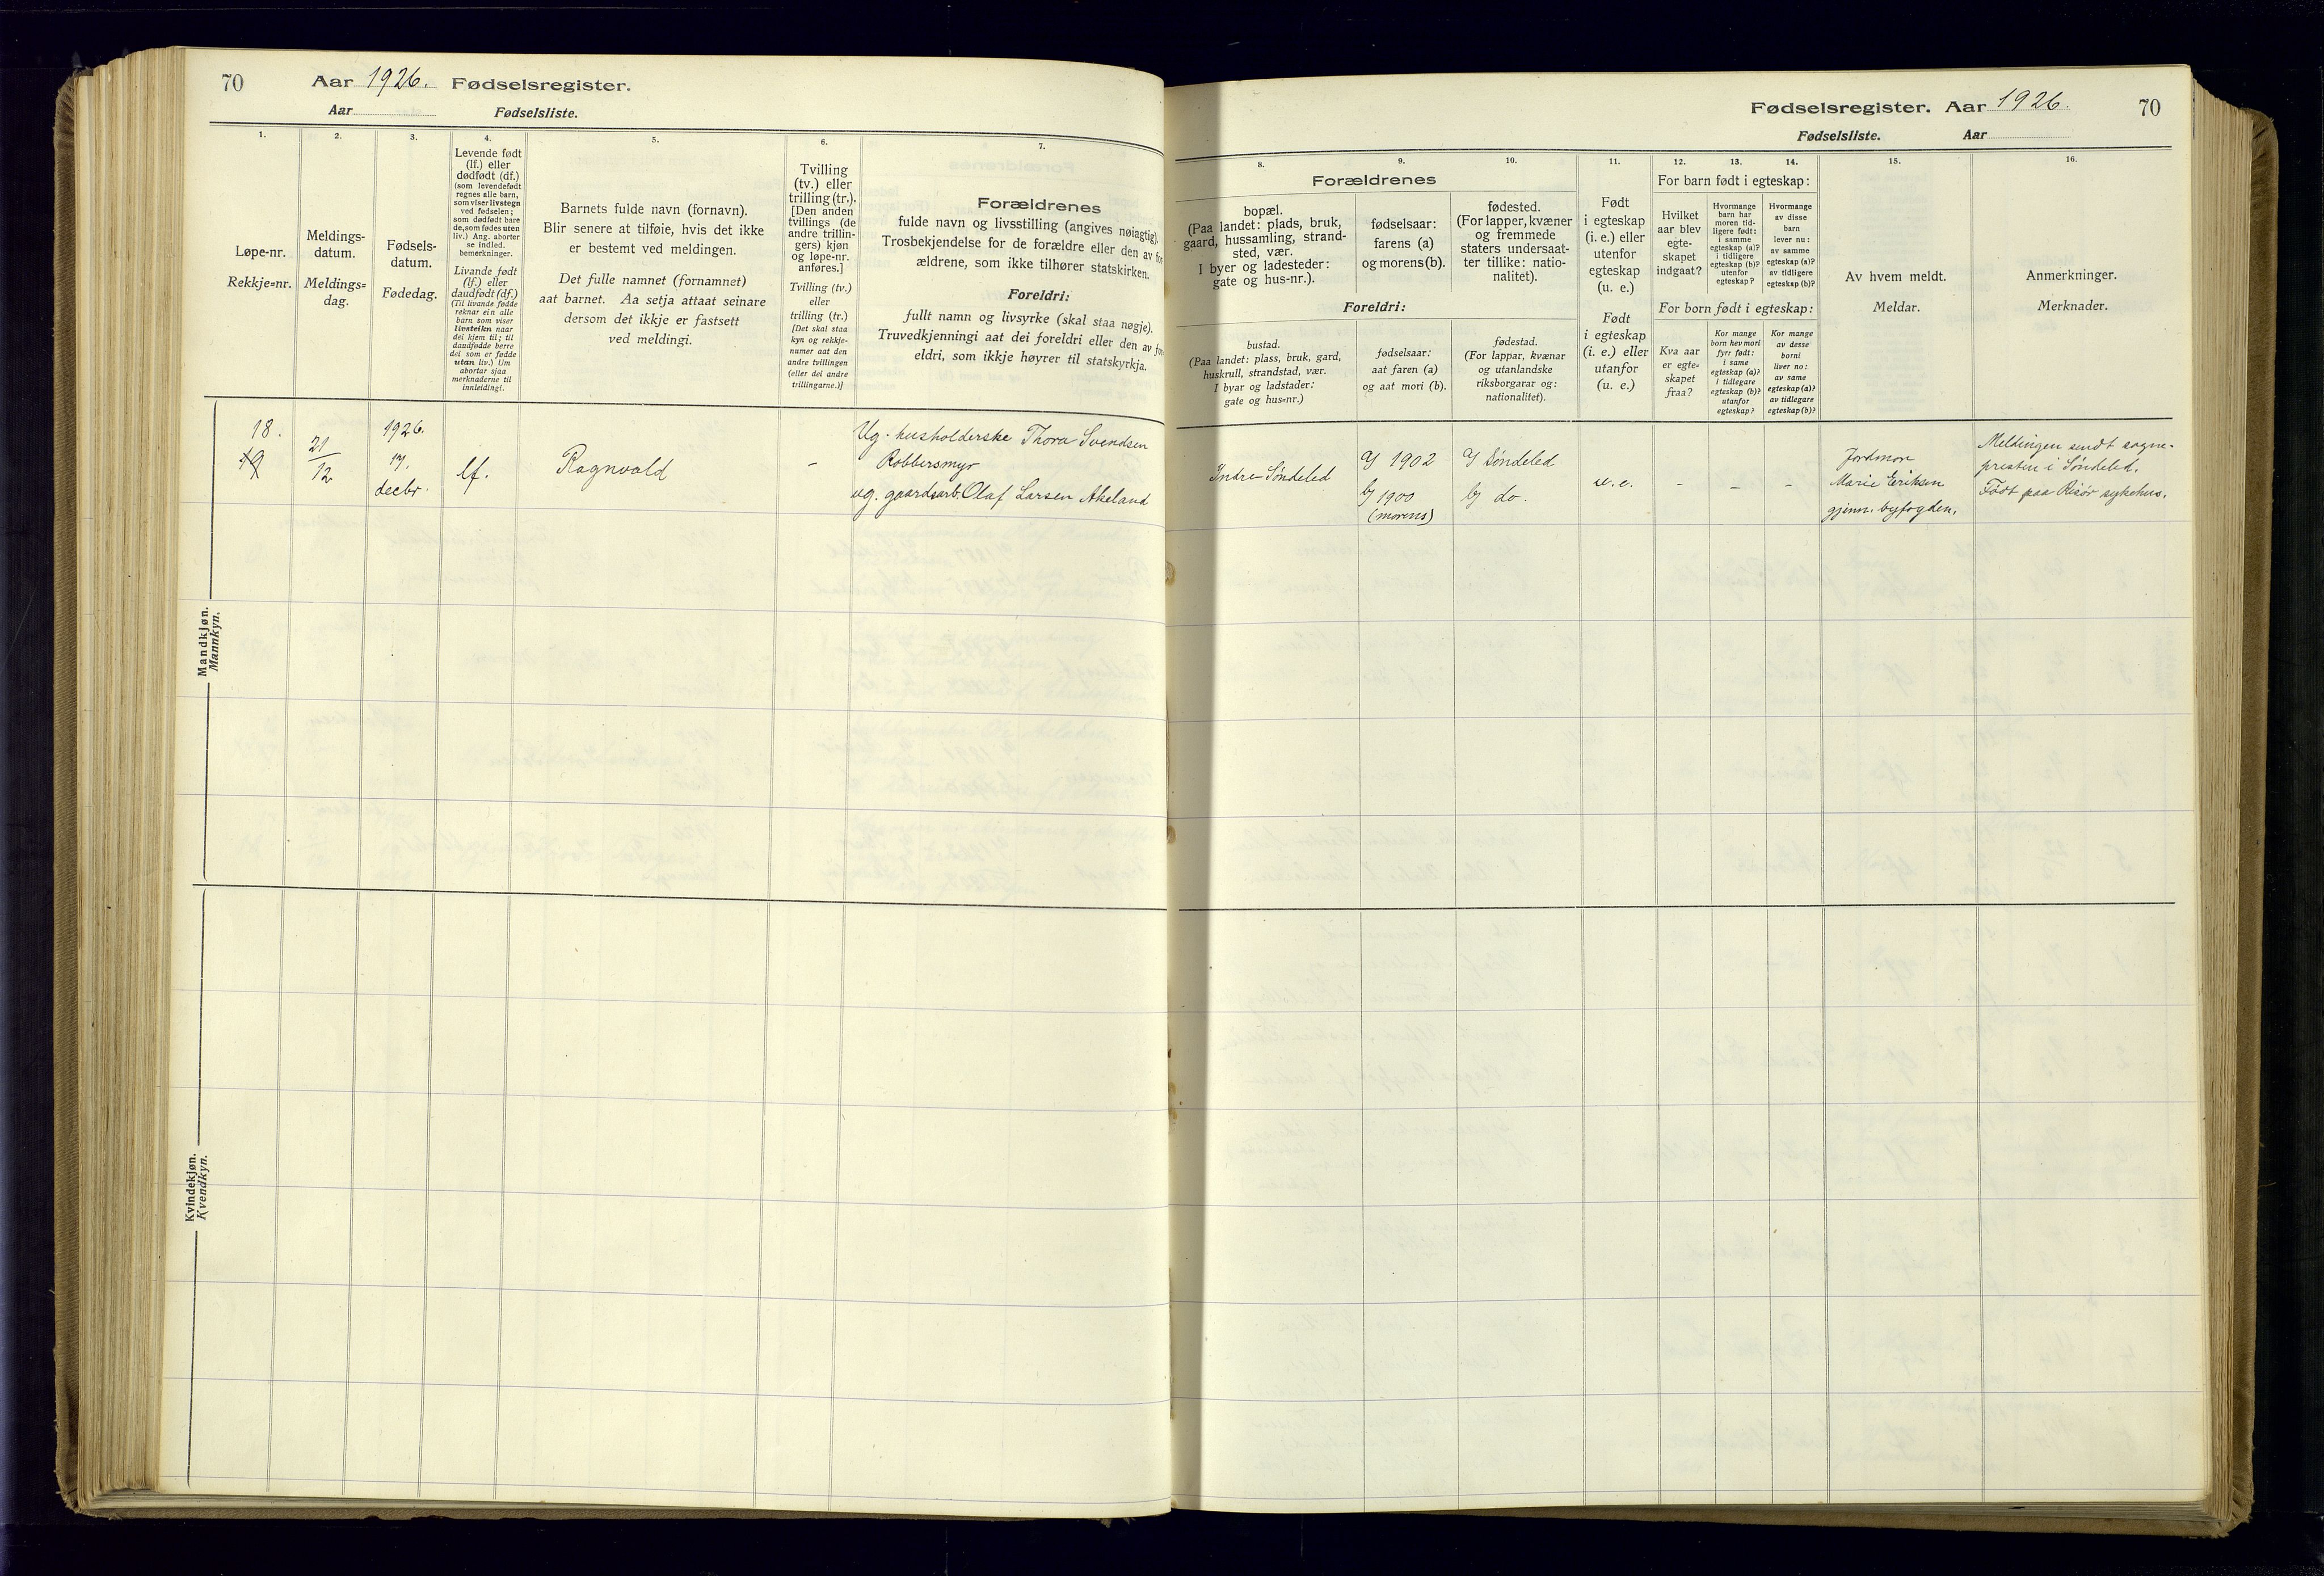 70 Aar 1926. Fødselsregister.
Aar Fødselsliste.
1. 2. 3. 4. 5. 6. 7.
Løpe-nr.
Rekkje=nr.
Meldings-
datum.
Meldings=
dag.
Fødsels-
datum.
Fødedag.
Levende født
(lf.) eller
dødfødt (df.)
(som levendefødt
regnes alle barn,
som viser livstegn
ved fødselen;
som dødfødt bare
de, som fødes uten
liv.) Ang. aborter
se indled.
bemerkninger.
Livande født
(lf.) eller
daudfødt (df.)
(Til livande fødde
reknar ein alle
barn som viser
livsteikn naar
dei kjem til; til
daudfødde berre
dei som er fødde
utan liv.) Um
abortar sjaa
merknaderne til
innleidingi.
Barnets fulde navn (fornavn).
Blir senere at tilføie, hvis det ikke
er bestemt ved meldingen.
Det fulle namnet (fornamnet)
aat barnet. Aa setja attaat seinare
dersom det ikkje er fastsett
ved meldingi.
Tvilling
(tv.) eller
trilling (tr.).
[Den anden
tvillings (de
andre trillin-
gers) kjøn
og løpe-nr.
anføres.]
Tvilling (tv.)
eller
trilling (tr.)
[Det skal staa
kyn og rekkje-
numer aat den
andre tvillingen
(eller dei andre
trillingarne.)]
Forældrenes
fulde navn og livsstilling (angives nøiagtig).
Trosbekjendelse for de forældre eller den av for-
ældrene, som ikke tilhører statskirken.
Foreldri:
fullt namn og livsyrke (skal staa nøgje).
Truvedkjenningi aat dei foreldri eller den av for-
eldri, som ikkje høyrer til statskyrkja.
18.
19
21
12
1926.
17.
decbr.
lf.
Ragnvald
–
Ug. husholderske Thora Svendsen
Robbersmyr
ug. gaardsarb. Olaf Larsen Akeland
Mandkjøn.
Mannkyn.
Kvindekjøn.
Kvendkyn.
Fødselsregister. Aar 1926. 70
Fødselsliste. Aar
8. 9. 10. 11. 12. 13. 14. 15. 16.
Forældrenes
bopæl.
(Paa landet: plads, bruk,
gaard, hussamling, strand-
sted, vær.
I byer og ladesteder:
gate og hus-nr.).
fødselsaar:
farens (a)
og morens (b).
fødested.
(For lapper, kvæner
og fremmede
staters undersaat-
ter tillike: natio-
nalitet).
Foreldri:
bustad.
(Paa landet: plass, bruk, gard,
huskrull, strandstad, vær.
I byar og ladstader:
gate og hus=nr.)
fødselsaar:
aat faren (a)
og aat mori (b).
fødestad.
(For lappar, kvænar
og utanlandske
riksborgarar og:
nationalitet).
Født
i egteskap
(i. e.) eller
utenfor
egteskap
(u. e.)
Født
i egteskap
(i. e.) eller
utanfor
(u. e.)
For barn født i egteskap:
Hvilket
aar blev
egte-
skapet
indgaat?
Hvormange
barn har
moren tid-
ligere født:
i samme
egteskap (a)?
i tidligere
egteskap (b)?
utenfor
egteskap?
Hvormange
av disse
barn
lever nu:
av samme
egteskap (a)?
av tidligere
egteskap (b)?
For born født i egteskap:
Kva aar
er egte=
skapet
fraa?
Kor mange
born hev mori
fyrr født:
i same
egteskap (a)?
i tidlegare
egteskap (b)?
utanfor
egteskap?
Kor mange
av desse
borni
liver no:
av same
egteskap (a)?
av tidlegare
egteskap (b)?
Av hvem meldt.
Meldar.
Anmerkninger.
Merknader.
Indre Søndeled
a) 1902
b) 1900
(morens)
a) Søndeled
b) do.
u. e.
– – –
Jordmor
Marie Eriksen
gjenn. byfogden.
Meldingen sendt sogne-
presten i Søndeled.
Født paa Risør sykehus.